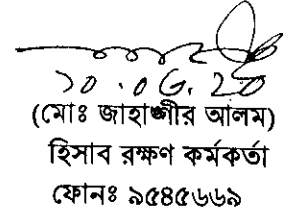 ১০.০৫.২৫
(মোঃ জাহাঙ্গীর আলম)
হিসাব রক্ষণ কর্মকর্তা
ফোনঃ ৯৫৪৫৬৬৯